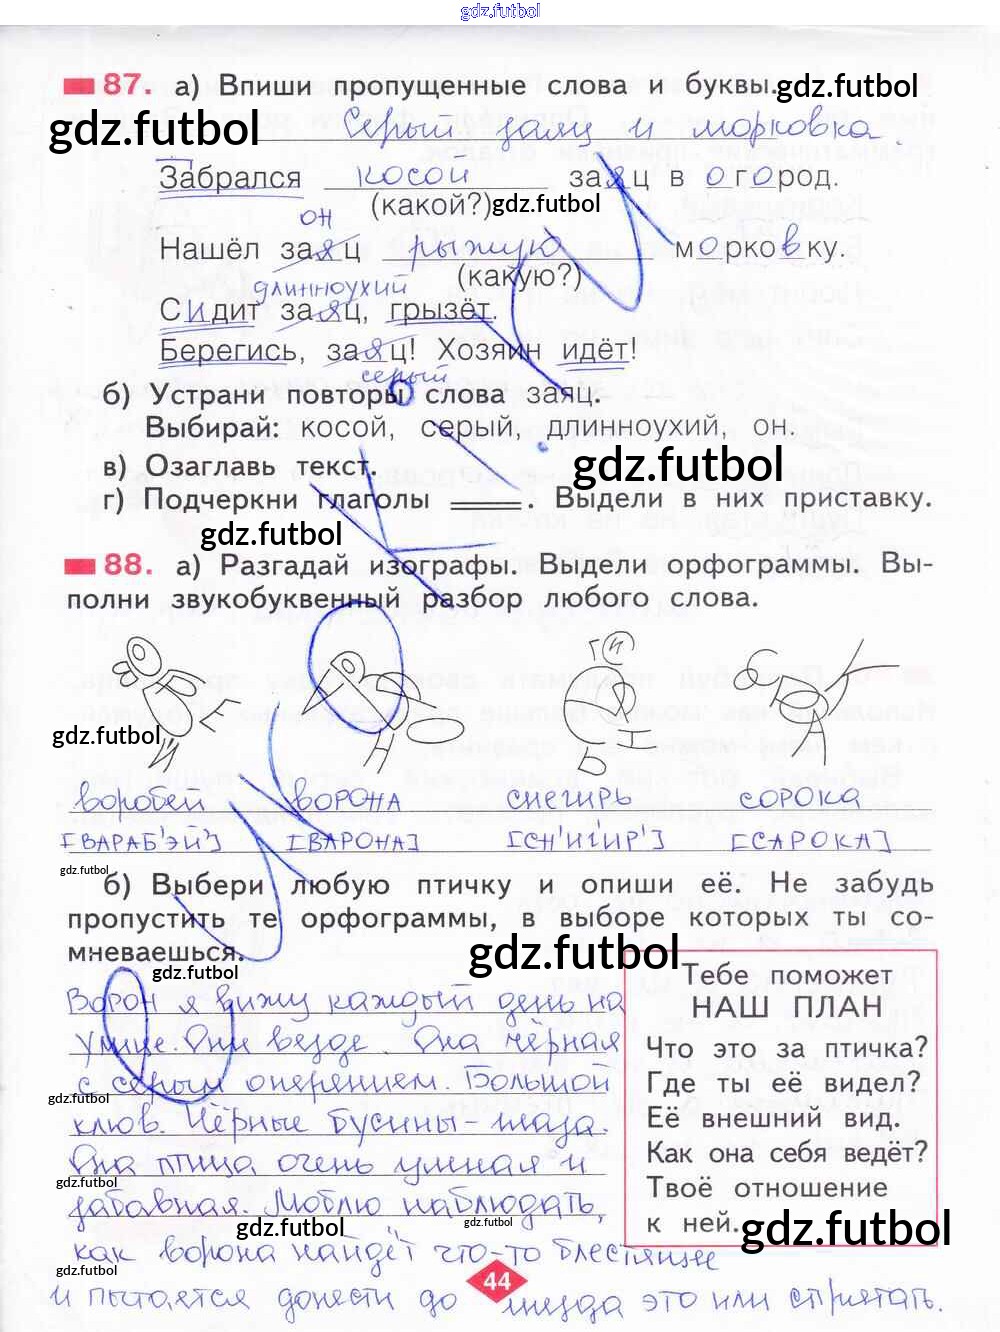 gdz.futbol
87. а) Впиши пропущенные слова и буквы. gdz.futbol
gdz.futbol Серый заяц и морковка
Забрался косой заяц в огород.
(какой?) gdz.futbol
он
Нашёл заяц рыжую морковку.
(какую?)
длинноухий
Сидит заяц, грызёт.
Берегись, заяц! Хозяин идёт!
серый
б) Устрани повторы слова заяц.
Выбирай: косой, серый, длинноухий, он.
в) Озаглавь текст. gdz.futbol
г) Подчеркни глаголы ____. Выдели в них приставку.
gdz.futbol
88. а) Разгадай изографы. Выдели орфограммы. Вы-
полни звукобуквенный разбор любого слова.
gdz.futbol
воробей ворона снегирь сорока
[ВАРАБ'ЭЙ'] [ВАРОНА] [СН'ИГ'ИР'] [САРОКА]
gdz.futbol
б) Выбери любую птичку и опиши её. Не забудь
пропустить те орфограммы, в выборе которых ты со-
мневаешься.
gdz.futbol gdz.futbol
Ворон я вижу каждый день на
улице. Они везде. Она чёрная
с серым оперением. Большой
gdz.futbol
клюв. Чёрные бусины-глаза.
Она птица очень умная и
gdz.futbol
забавная. Люблю наблюдать,
gdz.futbol gdz.futbol
как ворона найдёт что-то блестящее
gdz.futbol
и пытается донести до гнезда это или спрятать.
Тебе поможет
НАШ ПЛАН
Что это за птичка?
Где ты её видел?
Её внешний вид.
Как она себя ведёт?
Твоё отношение
к ней. gdz.futbol
44